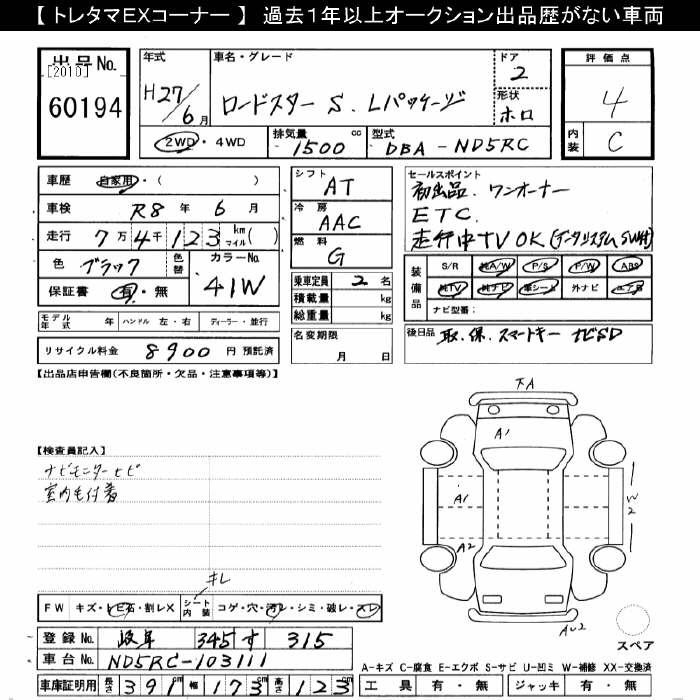 【 トレタマEXコーナー 】 過去1年以上オークション出品歴がない車両
出品No.
[2010]
60194
年式
H27/6月
車名・グレード
ロードスター S. Lパッケージ
ドア
2
形状
ホロ
2WD・4WD
排気量
1500 cc
型式
DBA - ND5RC
評価点
4
内装
C
車歴 自家用・( )
車検 R8年 6月
走行 7万4千123 km マイル( )
色 ブラック 色替
カラーNo. 41W
保証書 有・無
シフト AT
冷房 AAC
燃料 G
乗車定員 2名
積載量 kg
総重量 kg
名変期限
月 日
セールスポイント
初出品. ワンオーナー
ETC.
走行中TV OK(データシステムSW付)
装備品
S/R 純A/W P/S P/W ABS
純TV 純ナビ 革シート 外ナビ エアB
ナビ型番:
後日品 取. 保. スマートキー ナビSD
モデル年式 年 ハンドル 左・右 ディーラー・並行
リサイクル料金 8900 円 預託済
【出品店申告欄(不良箇所・欠品・注意事項等)】
【検査員記入】
ナビモニターヒビ
室内毛付着
キレ
FW キズ・ヒビ石・割レX シート内装 コゲ・穴・汚レ・シミ・破レ・スレ
登録No. 岐阜 345 す 315
車台No. ND5RC-103111
車庫証明用 長さ 391cm 幅 173cm 高さ 123cm
下A
A1
A1
A2
W2
AU2
スペア
A-キズ C-腐食 E-エクボ S-サビ U-凹ミ W-補修 XX-交換済
工具 有・無 ジャッキ 有・無